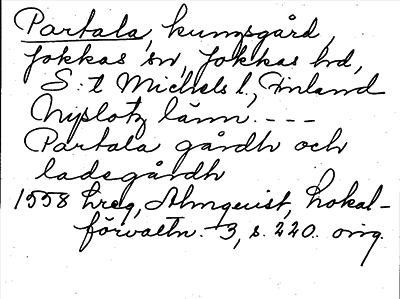 Partala, kungsgård,
Jokkas sn, Jokkas hd,
S:t Michels l, Finland
Nyslotz länn. - - -
Partala gårdh och
ladsgårdh
1558 Lreg, Almquist, Lokal-
förvaltn. 3, s. 220. orig.